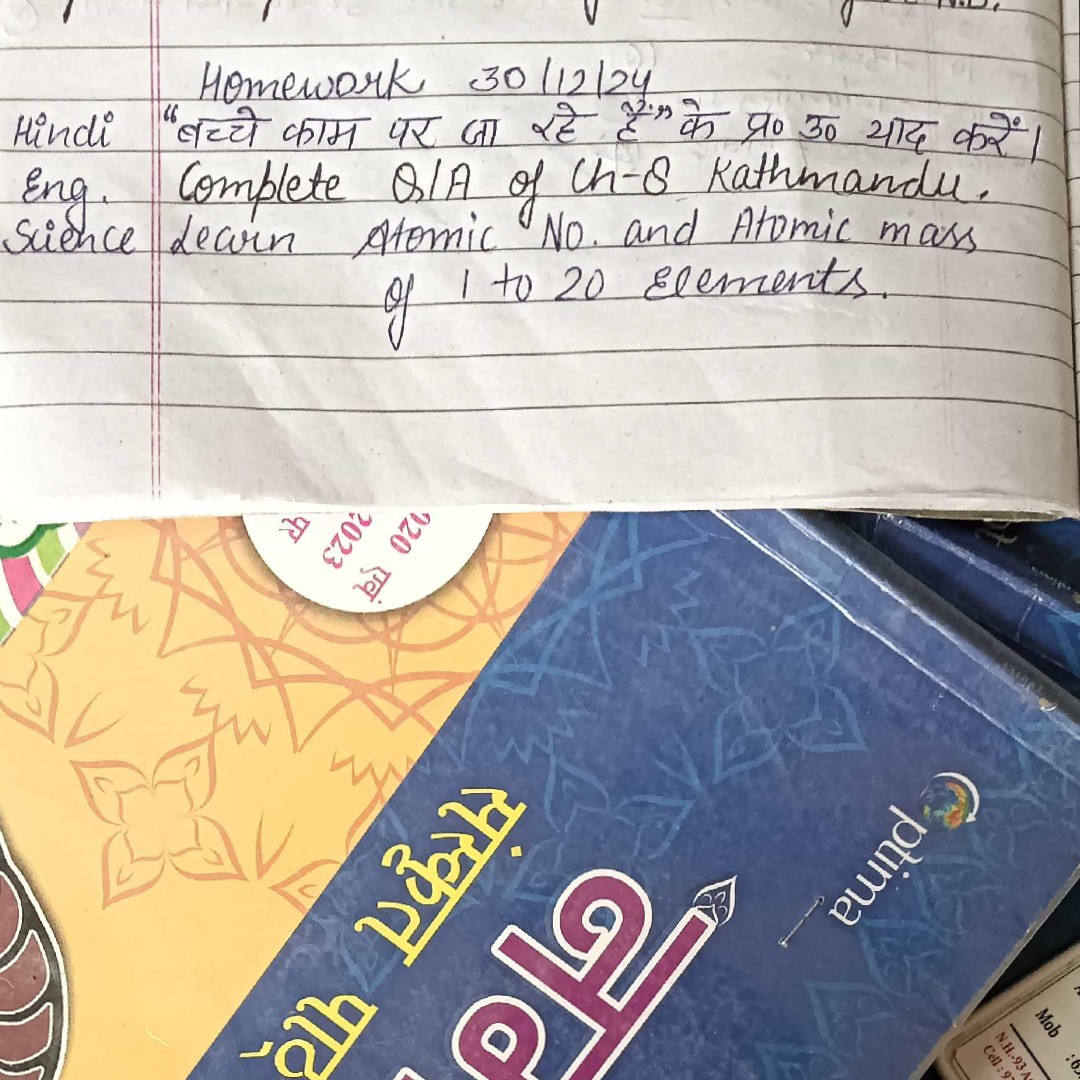 N.D.
Homework 30/12/24
Hindi "बच्चे काम पर जा रहे हैं" के प्र० उ० याद करें।
Eng. Complete Q/A of Ch-8 Kathmandu.
Science Learn Atomic No. and Atomic mass
of 1 to 20 Elements.
020 एवं
2023
संस्कृत
ptima
Mob
N.H.-93 A
Cell : 9